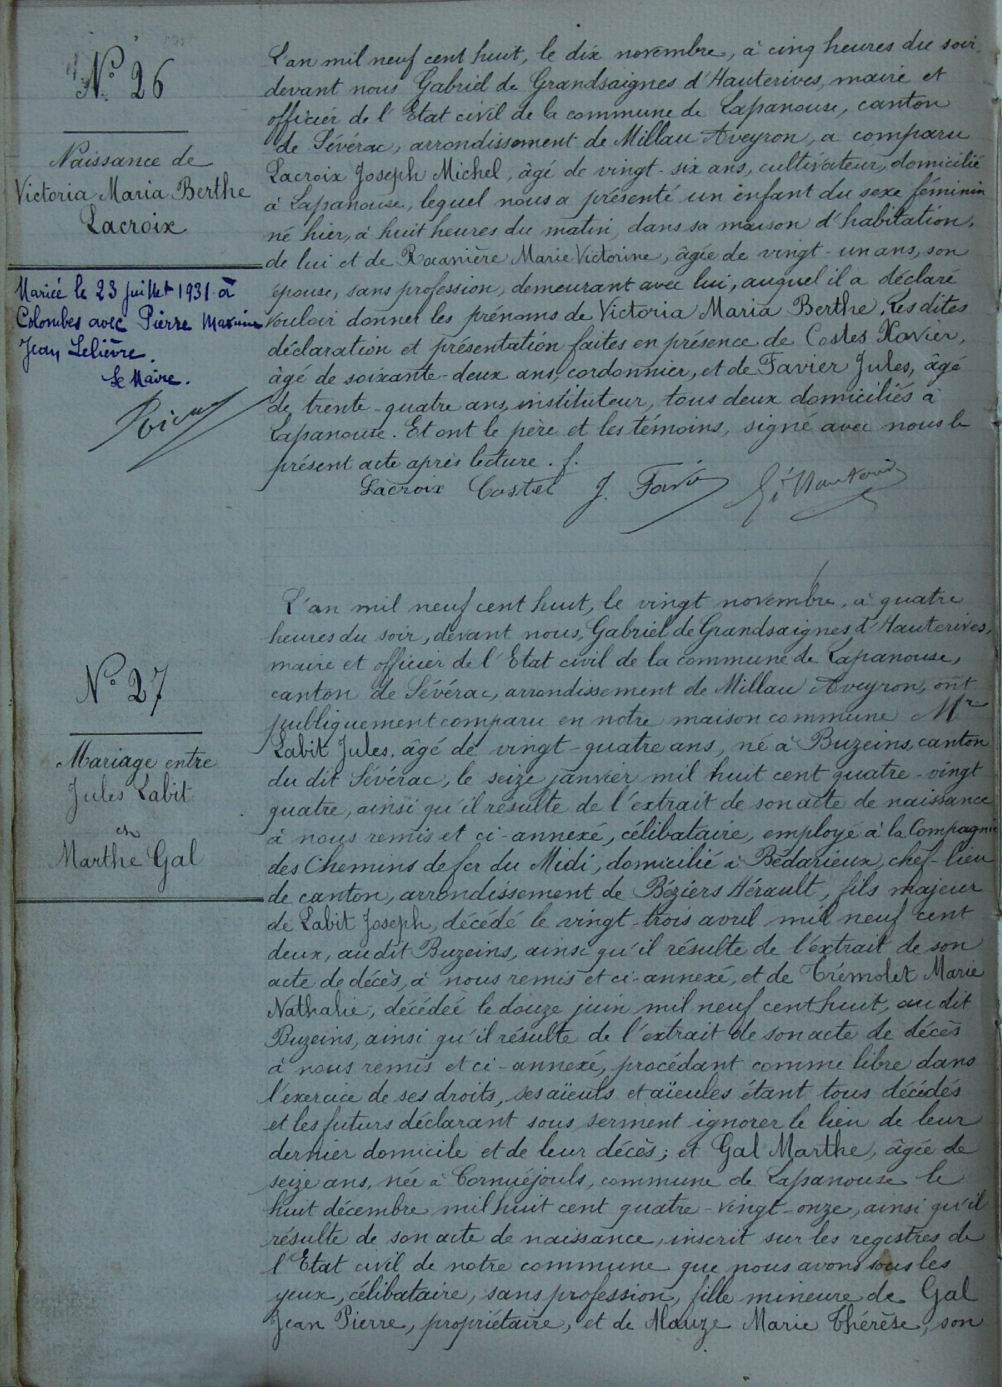 N° 26
Naissance de
Victoria Maria Berthe
Lacroix
Mariée le 23 juillet 1931 à
Colombes avec Pierre Maxime
Jean Lelièvre.
Le Maire.
L'an mil neuf cent huit, le dix novembre, à cinq heures du soir
devant nous Gabriel de Grandsaignes d'Hauterives, maire et
officier de l'Etat civil de la commune de Lapanouse, canton
de Sévérac, arrondissement de Millau Aveyron, a comparu
Lacroix Joseph Michel, âgé de vingt-six ans, cultivateur, domicilié
à Lapanouse, lequel nous a présenté un enfant du sexe féminin
né hier, à huit heures du matin, dans sa maison d'habitation,
de lui et de Marie Victorine, âgée de vingt-un ans, son
épouse, sans profession, demeurant avec lui, auquel il a déclaré
vouloir donner les prénoms de Victoria Maria Berthe. Les dites
déclaration et présentation faites en présence de Costes Xavier,
âgé de soixante-deux ans, cordonnier, et de Favier Jules, âgé
de trente-quatre ans, instituteur, tous deux domiciliés à
Lapanouse. Et ont le père et les témoins, signé avec nous le
présent acte après lecture. f.
Lacroix Costes J. Favier
N° 27
Mariage entre
Jules Labit
et
Marthe Gal
L'an mil neuf cent huit, le vingt novembre, à quatre
heures du soir, devant nous, Gabriel de Grandsaignes d'Hauterives,
maire et officier de l'Etat civil de la commune de Lapanouse,
canton de Sévérac, arrondissement de Millau Aveyron, ont
publiquement comparu en notre maison commune Mr
Labit Jules, âgé de vingt-quatre ans, né à Buzeins, canton
du dit Sévérac, le seize janvier mil huit cent quatre-vingt
quatre, ainsi qu'il résulte de l'extrait de son acte de naissance
à nous remis et ci-annexé, célibataire, employé à la Compagnie
des Chemins de fer du Midi, domicilié à Bédarieux, chef-lieu
de canton, arrondissement de Béziers Hérault, fils majeur
de Labit Joseph, décédé le vingt-trois avril mil neuf cent
deux, au dit Buzeins, ainsi qu'il résulte de l'extrait de son
acte de décès, à nous remis et ci-annexé, et de Trémolet Marie
Nathalie, décédée le douze juin mil neuf cent huit, au dit
Buzeins, ainsi qu'il résulte de l'extrait de son acte de décès
à nous remis et ci-annexé, procédant comme libre dans
l'exercice de ses droits, ses aïeuls et aïeules étant tous décédés
et les futurs déclarant sous serment ignorer le lieu de leur
dernier domicile et de leur décès; et Gal Marthe, âgée de
seize ans, née à Cornuéjouls, commune de Lapanouse le
huit décembre mil huit cent quatre-vingt-onze, ainsi qu'il
résulte de son acte de naissance, inscrit sur les registres de
l'Etat civil de notre commune que nous avons sous les
yeux, célibataire, sans profession, fille mineure de Gal
Jean Pierre, propriétaire, et de Mauze Marie Thérèse, son